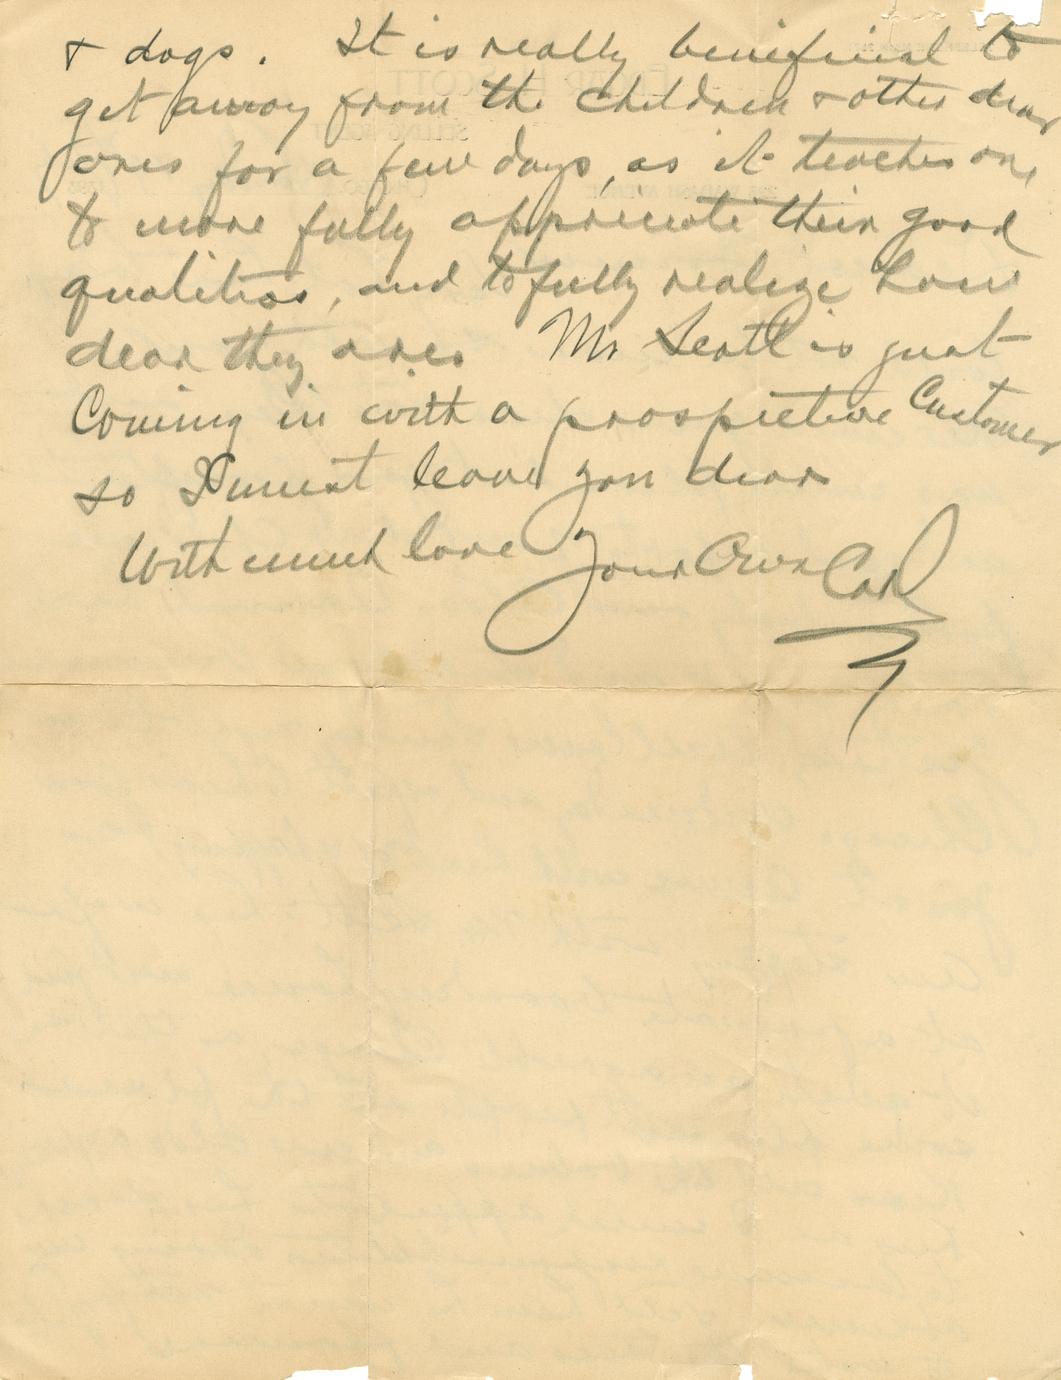 & dogs. It is really beneficial to
get away from the children & other dear
ones for a few days, as it teaches one
to more fully appreciate their good
qualities, and to fully realize how
dear they are. Mr Scott is just
Coming in with a prospective Customer
so I must leave you dear
With much love Your Own Carl